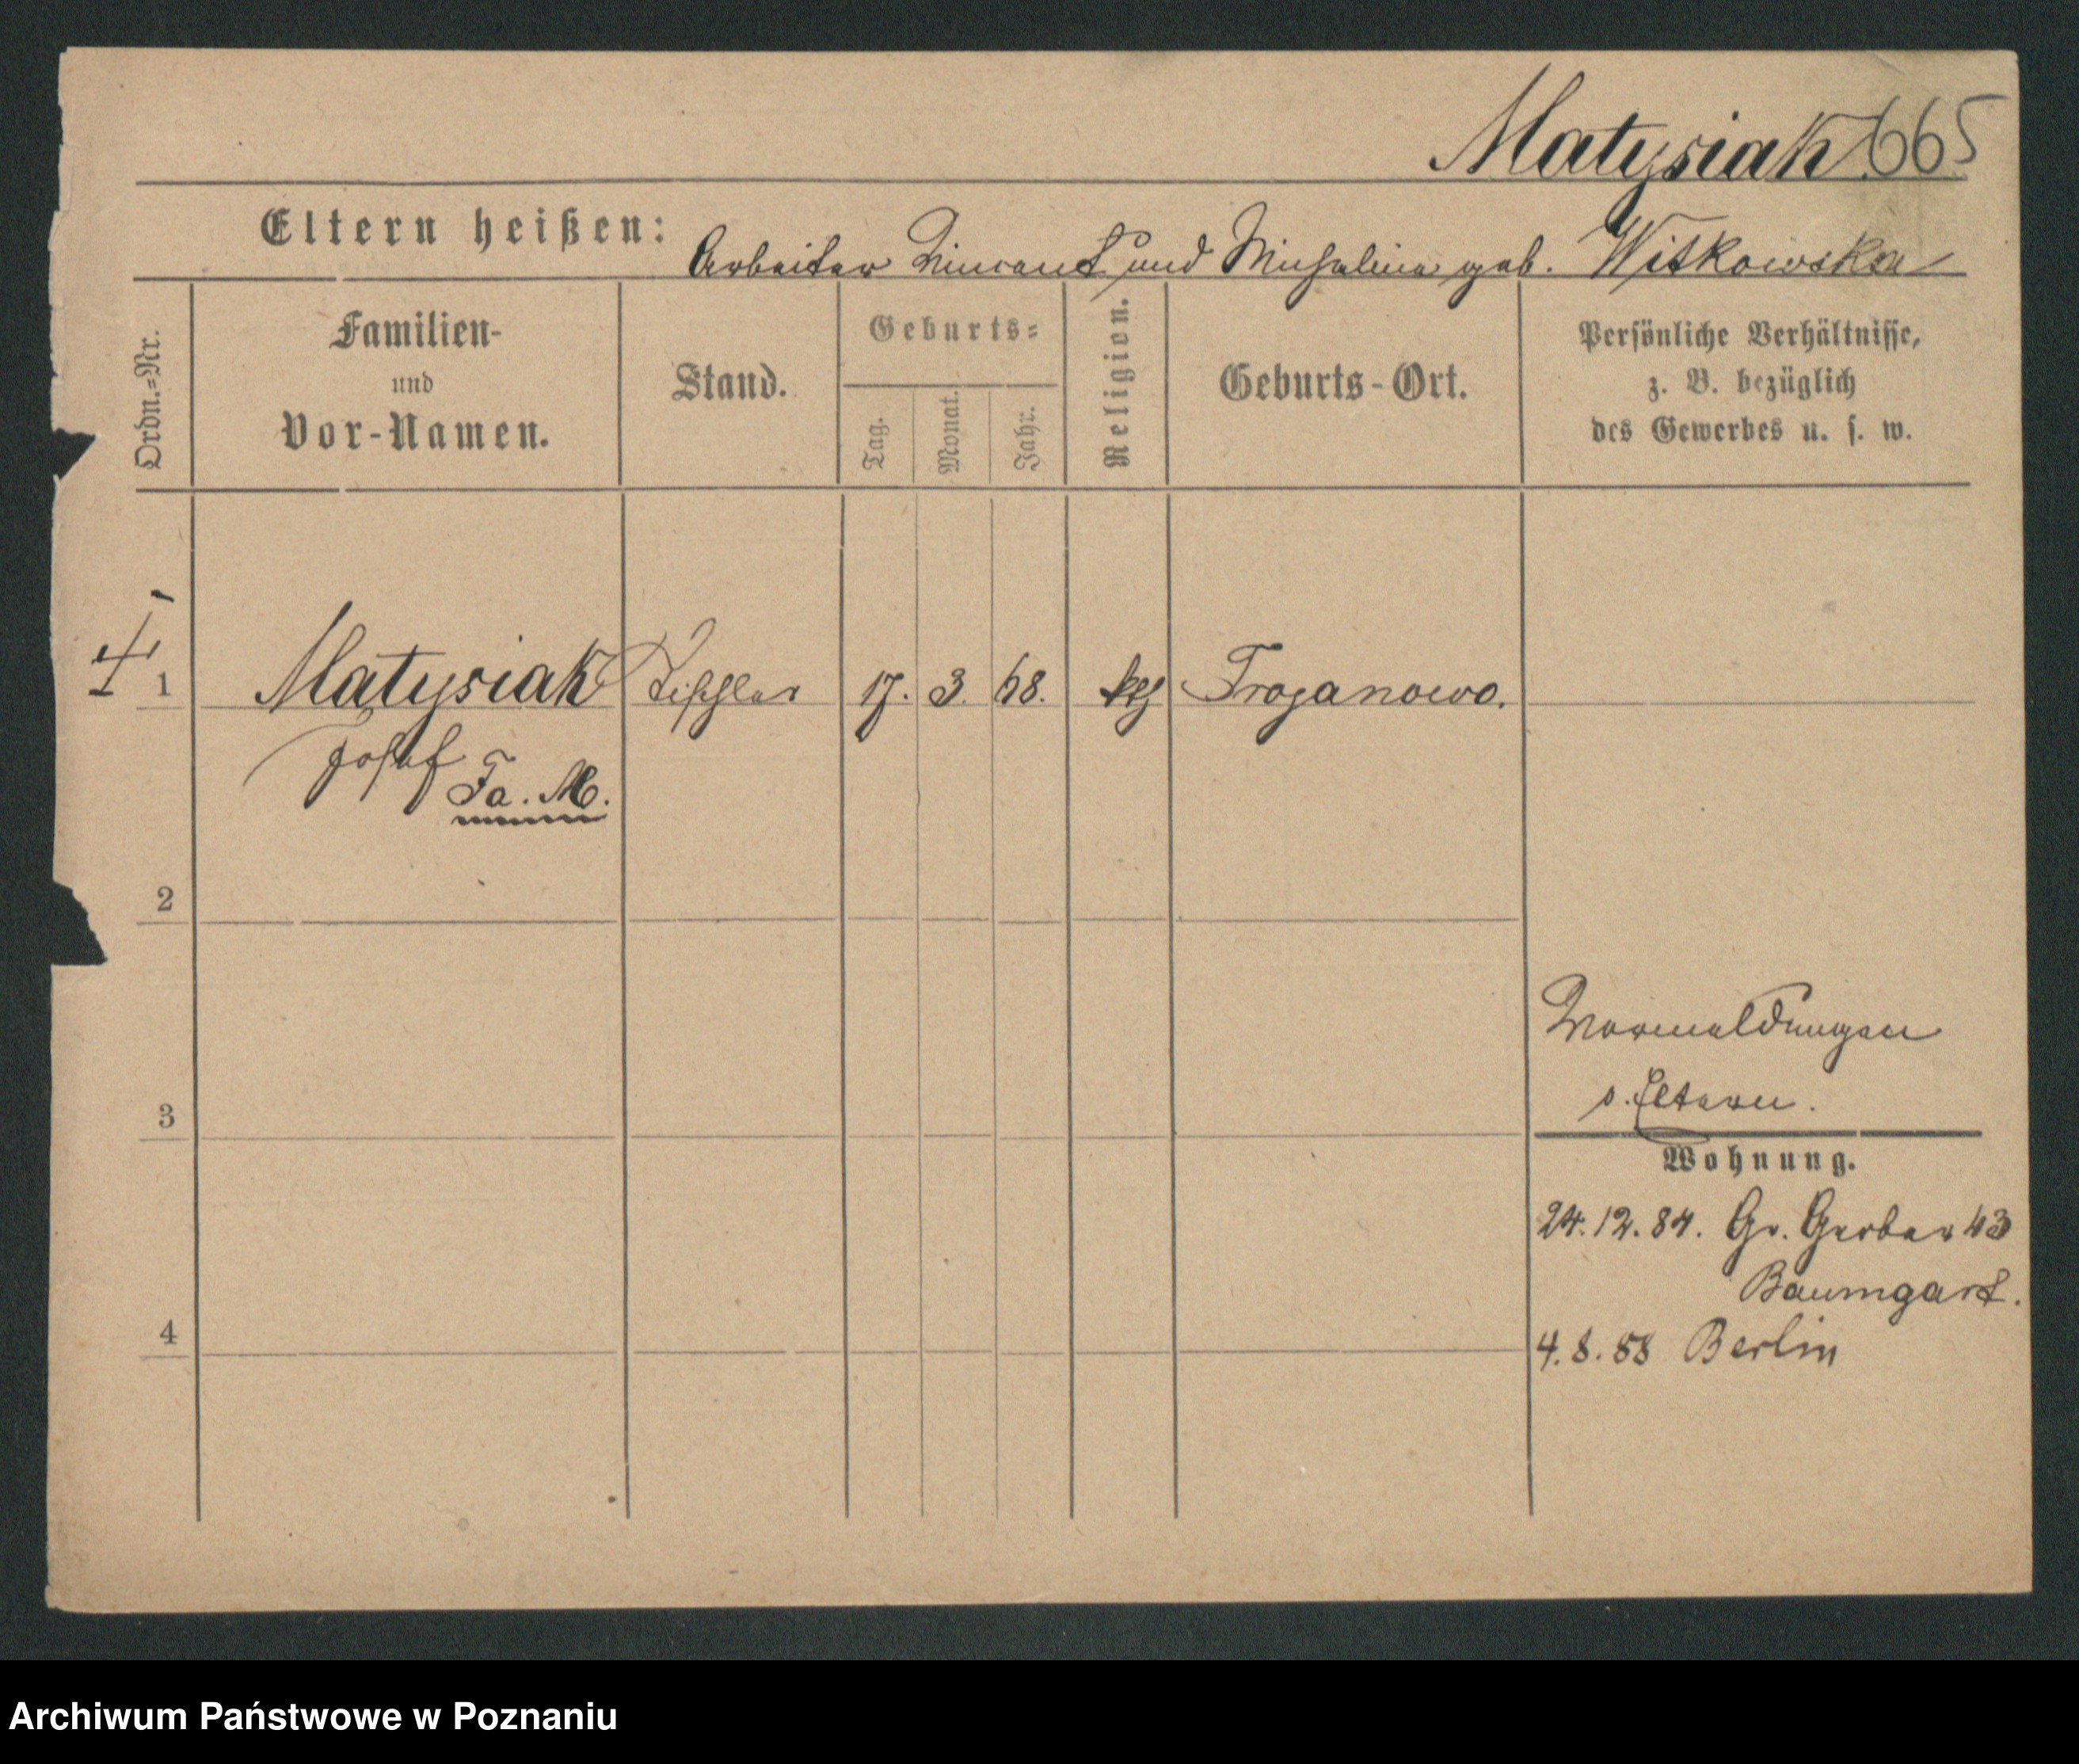 Matysiak 665
Eltern heißen: Arbeiter Vincent und Michalina geb. Witkowska
Ordn.=Nr.
Familien-
und
Vor-Namen.
Stand.
Geburts=
Tag.
Monat.
Jahr.
Religion.
Geburts-Ort.
Persönliche Verhältnisse,
z. B. bezüglich
des Gewerbes u. s. w.
1 Matysiak Tischler 17. 3. 68. kth Trojanowo.
Josef Fa. M.
2
Vormeldungen
3 s. Eltern.
Wohnung.
24.12.84. Gr. Gerber 43
Baumgart.
4
4.8.88 Berlin
Archiwum Państwowe w Poznaniu